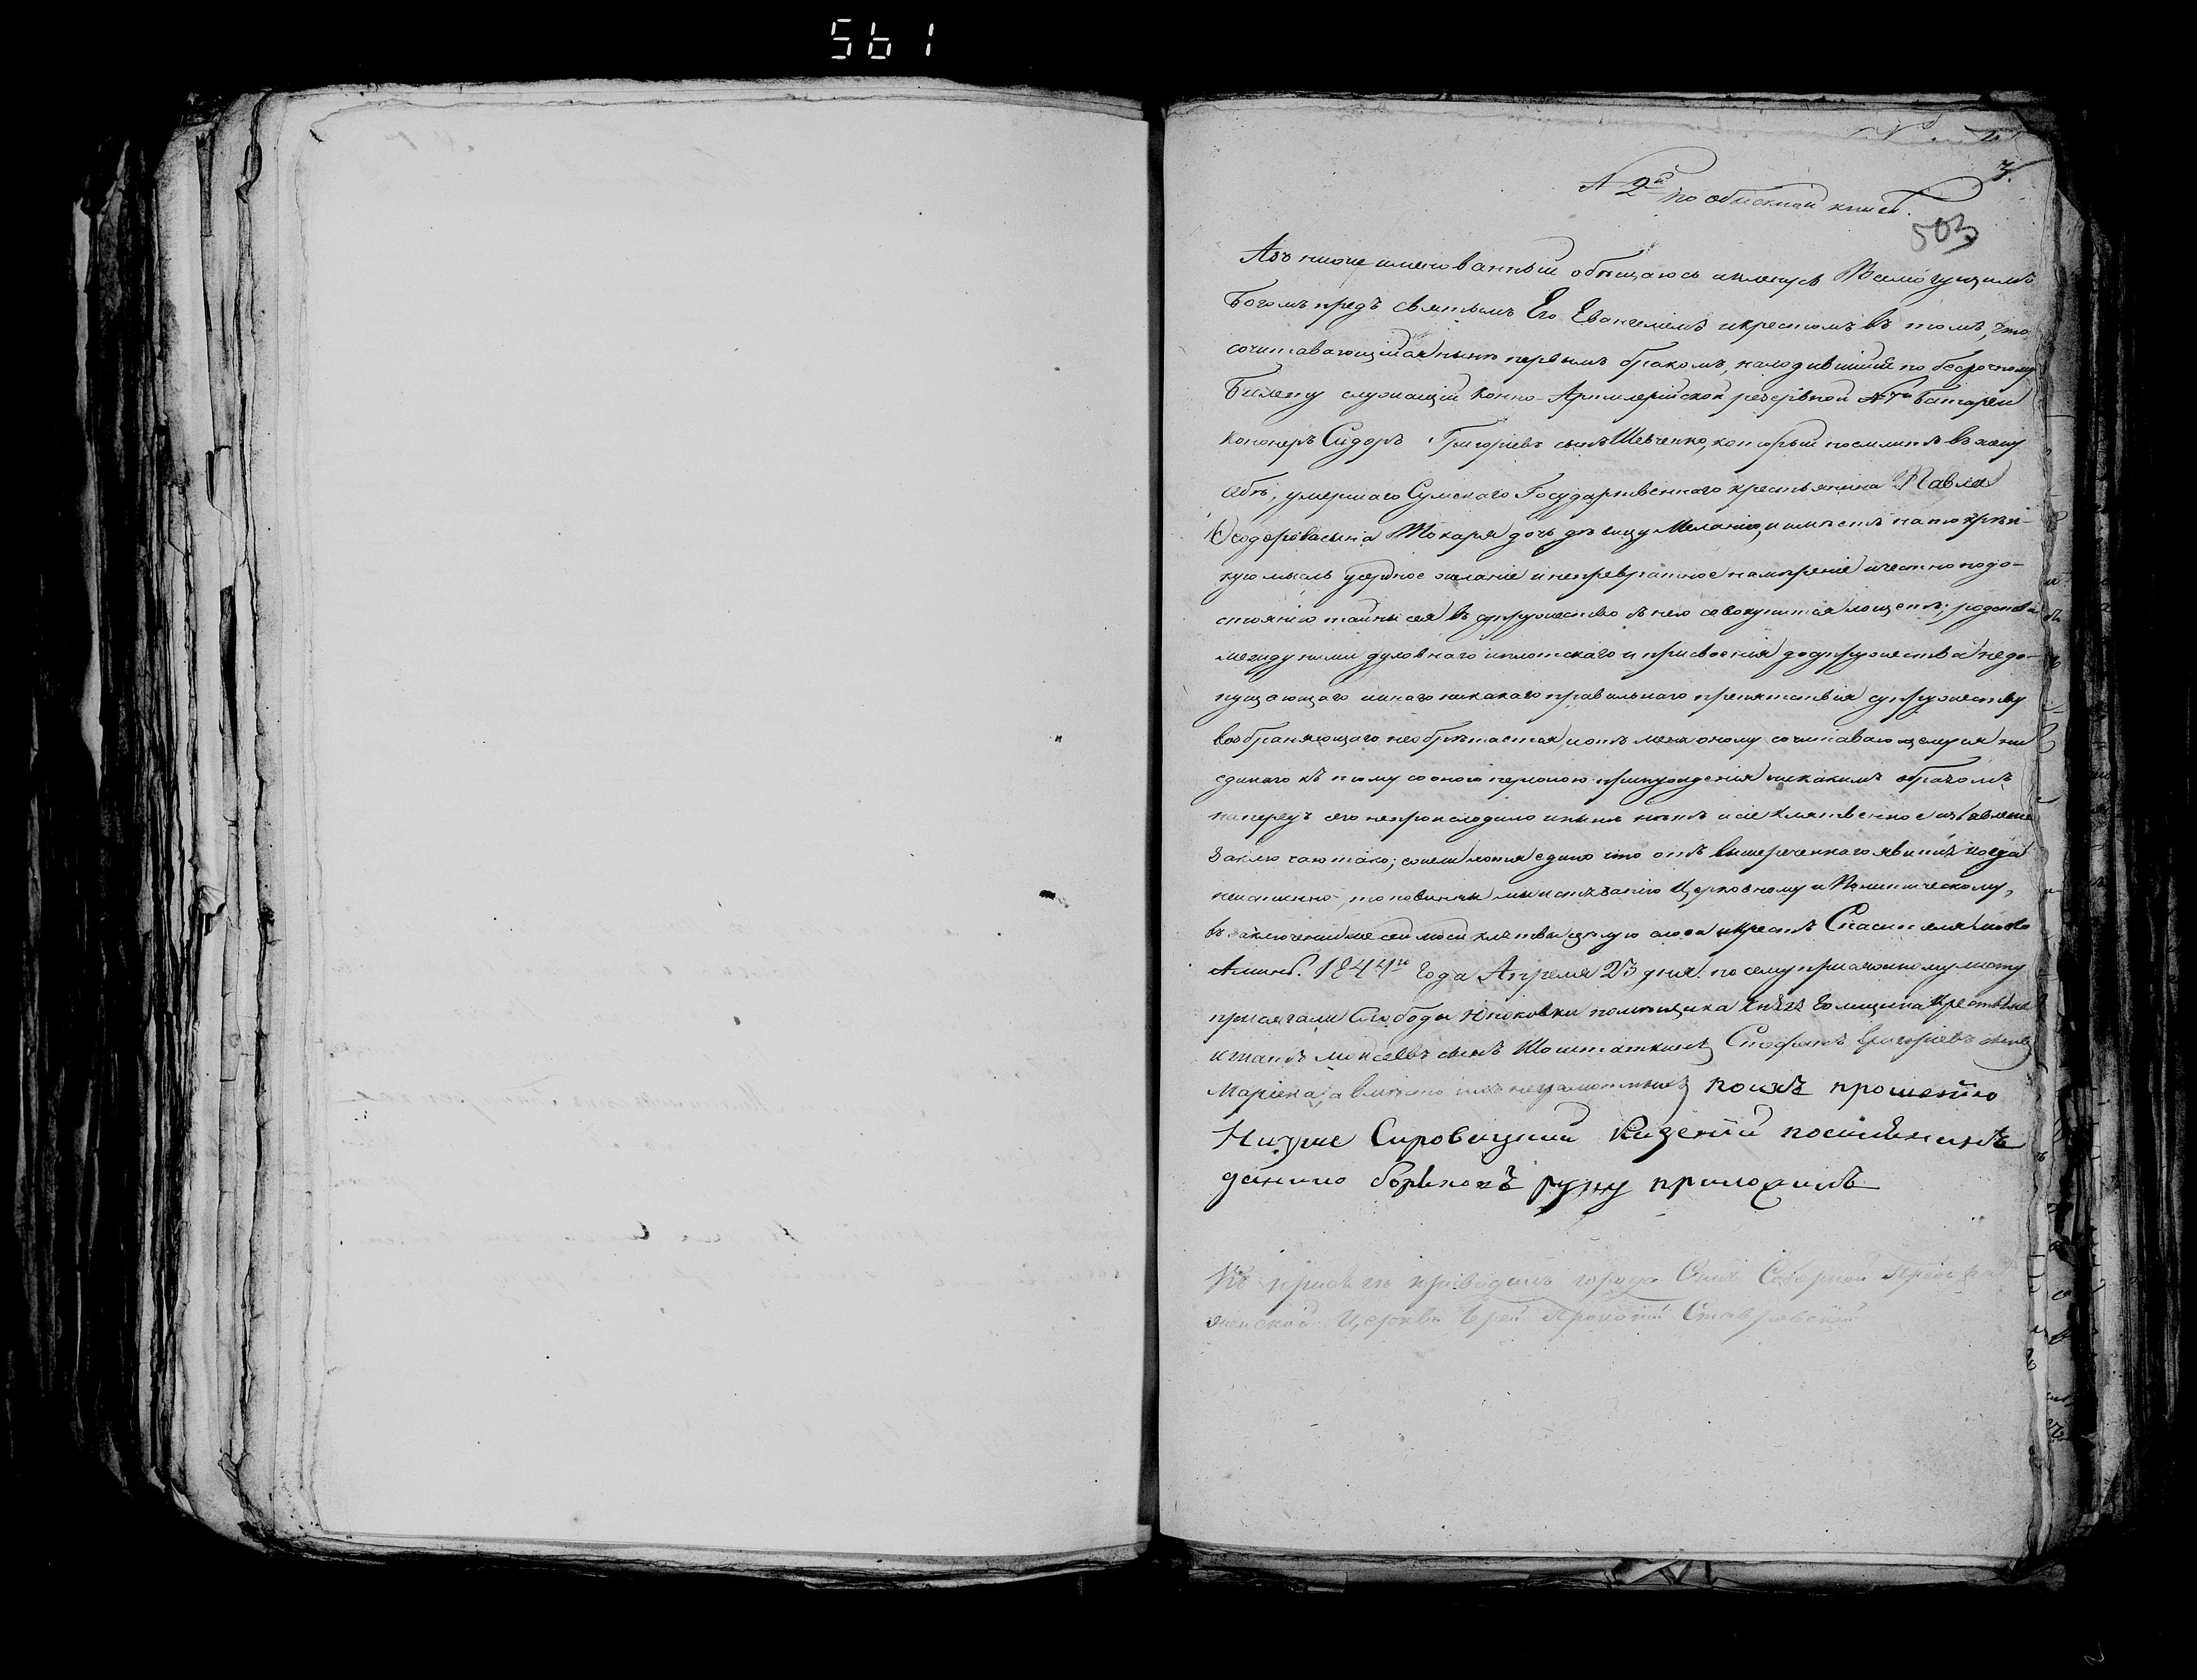 561
3.
№ 2й по обыскной книге.
503
Азъ ниже имянованный обѣщаюсь и кленусь Всемогущимъ
Богомъ предъ святымъ Его Евангелiемъ и крестомъ въ томъ, что
сочитавающiйся нынѣ первымъ бракомъ, находившiйся по безсрочному
Билету служащiй Конно-Артилерiйской резервной № 7й батареи
Канонеръ Сидоръ Григорiевъ сынъ Шевченко, который поемлитъ въ жену
себѣ, умершаго Сумскаго Государственнаго крестьянина Павла
Ѳеодорова сына Токаря дочь дѣвицу Меланiю, и имѣетъ на то крѣп-
кую мысль усердное желанiе и непревратное намѣренiе и честно по до-
стоянiю тайны сея въ супружество съ нею совокупится ищетъ; родства
между ними духовнаго и плотскаго и присвоенiя до супружества недо-
пущающаго и инаго никакаго правильнаго препятствiя супружеству
возбраняющаго необрѣтается, и отъ мене оному сочитавающемуся ни
единаго къ тому со оною персоною принужденiя никакимъ образомъ
напередъ сего непроисходило и нынѣ нѣтъ и сiе клятвенное изъявленiе
Заключаю тако; если хотя едино что отъ вышереченнаго явится когда
неистинно, то повинны мы истязанiю Церковному и Политическому,
въ заключенiи же сей моей клятвы цѣлую слова и Крестъ Спасителя моего
Аминь. 1844го Года Апреля 23 дня. по сему присяжному листу
присягали Слободы Юнаковки помѣщика Князя Голицина Крестьяне
Моисеевъ сынъ Стефанъ Григорiевъ сынъ
а вмѣсто ихъ неграмотныхъ по ихъ прошенiю
Нижне Сироватский Казенiй посилянинъ
данило руку приложилъ
Къ присягѣ приводилъ города Сумъ Соборной Преобра-
женской Церкви Iерей Прокопiй Ставровскiй